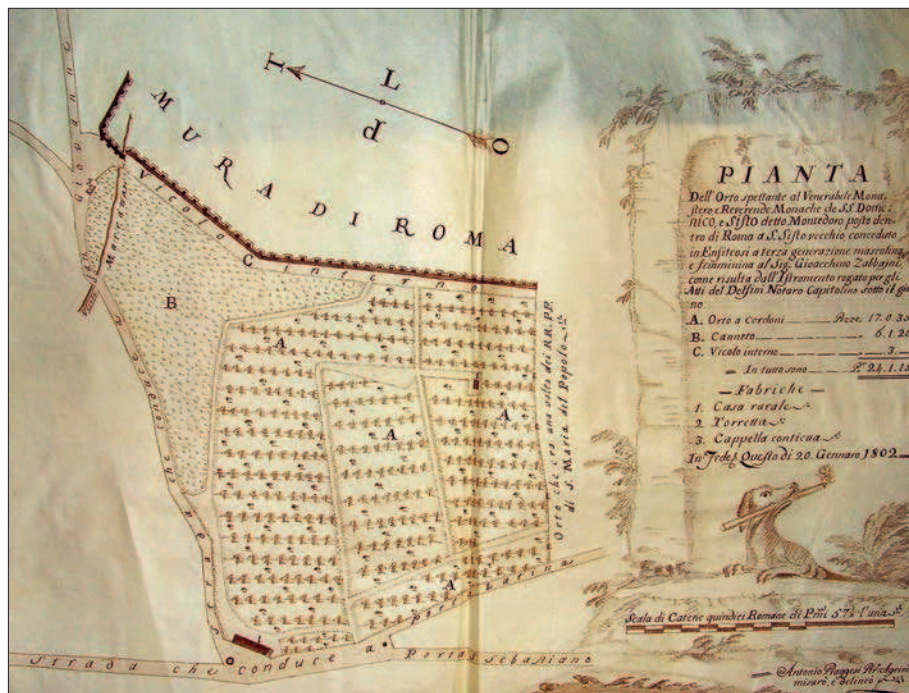 T L
P O
MURA DI ROMA
Vicolo C interno
Marrana
B
A
A
A
A
Orto che era una volta dei RR.PP.
di S. Maria del Popolo
Strada che conduce a Porta Latina
Strada che conduce a Porta S. Sebastiano
PIANTA
Dell'Orto spettante al Venerabile Mona-
stero e Reverende Monache de SS. Dome-
nico, e Sisto detto Montedoro posto den-
tro di Roma a S. Sisto vecchio conceduto
in Enfiteosi a terza generazione mascolina,
e femminina al Sig. Gioacchino Zabbajni,
come risulta dall'Istromento rogato per gli
Atti del Delfini Notaro Capitolino sotto il gior
no
A. Orto a Cordoni Pezze. 17.0.35
B. Canneto 6.1.20
C. Vicolo interno 3
In tutto sono Pze 24.1.15
Fabriche
1. Casa rurale
2. Torretta
3. Cappella contigua
In Fede Questo di 20 Gennaro 1802
Scala di Catene quindici Romane di Plmi 57½ l'una
Antonio Piaggesi Pub. Agrim
misurò, e delineò